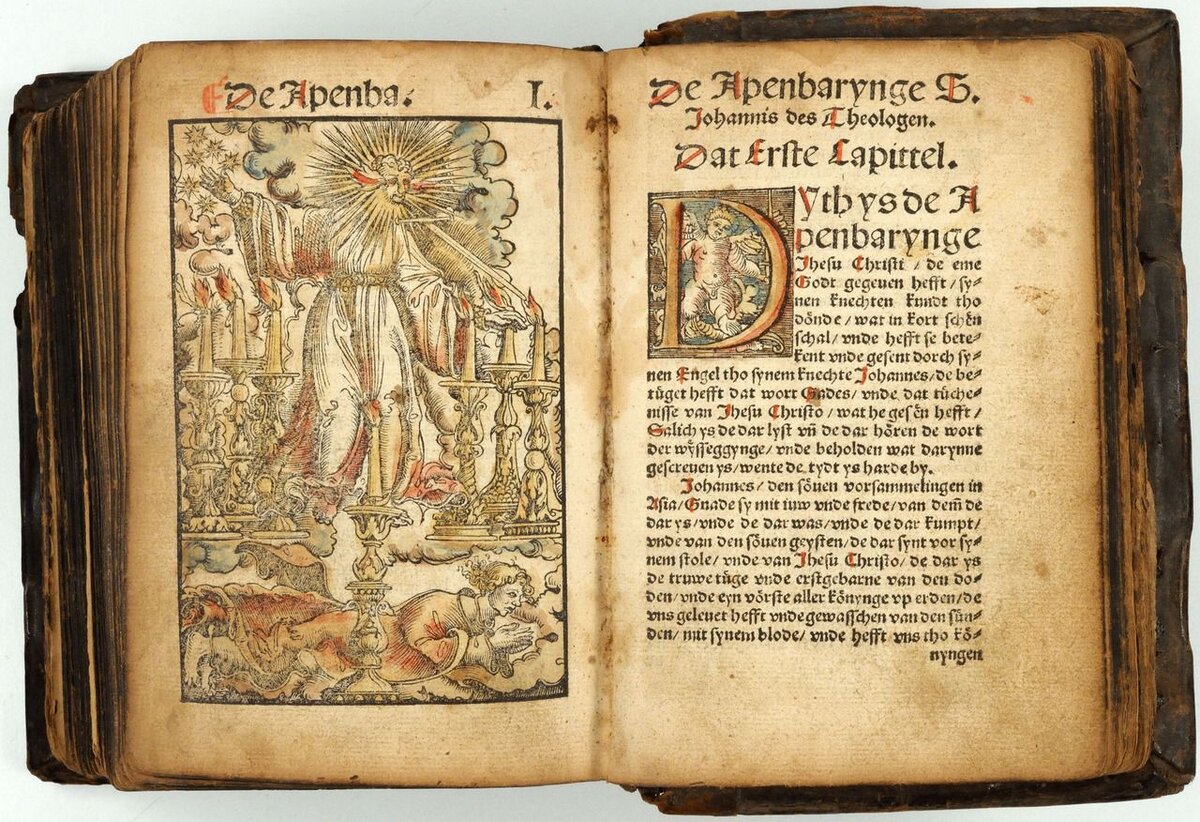 De Apenba.
I.
De Apenbarynge S.
Johannis des Theologen.
Dat Erste Capittel.
Dyth ys de A
penbarynge
Jhesu Christi / de eme
Godt gegeuen hefft / sy⸗
nen knechten kundt tho
dönde / wat in kort schên
schal / vnde hefft se bete⸗
kent vnde gesent dorch sy⸗
nen Engel tho synem knechte Johannes / de be⸗
tüget hefft dat wort Gades / vnde dat tüche⸗
nisse van Jhesu Christo / wat he gesên hefft /
Salich ys de dar lyst vñ de dar hören de wort
der wÿsseggynge / vnde beholden wat darynne
gescreuen ys / wente de tydt ys harde by.
Johannes / den söuen vorsammelingen in
Asia / Gnade sy mit iuw vnde frede / van dem̃ de
dar ys / vnde de dar was / vnde de dar kumpt /
vnde van den söuen geysten / de dar synt vor sy⸗
nem stole / vnde van Jhesu Christo / de dar ys
de truwe tüge vnde erstgebarne van den do⸗
den / vnde eyn vörste aller könynge vp erden / de
vns geleuet hefft vnde gewasschen van den sün⸗
den / mit synem blode / vnde hefft vns tho kö⸗
nyngen